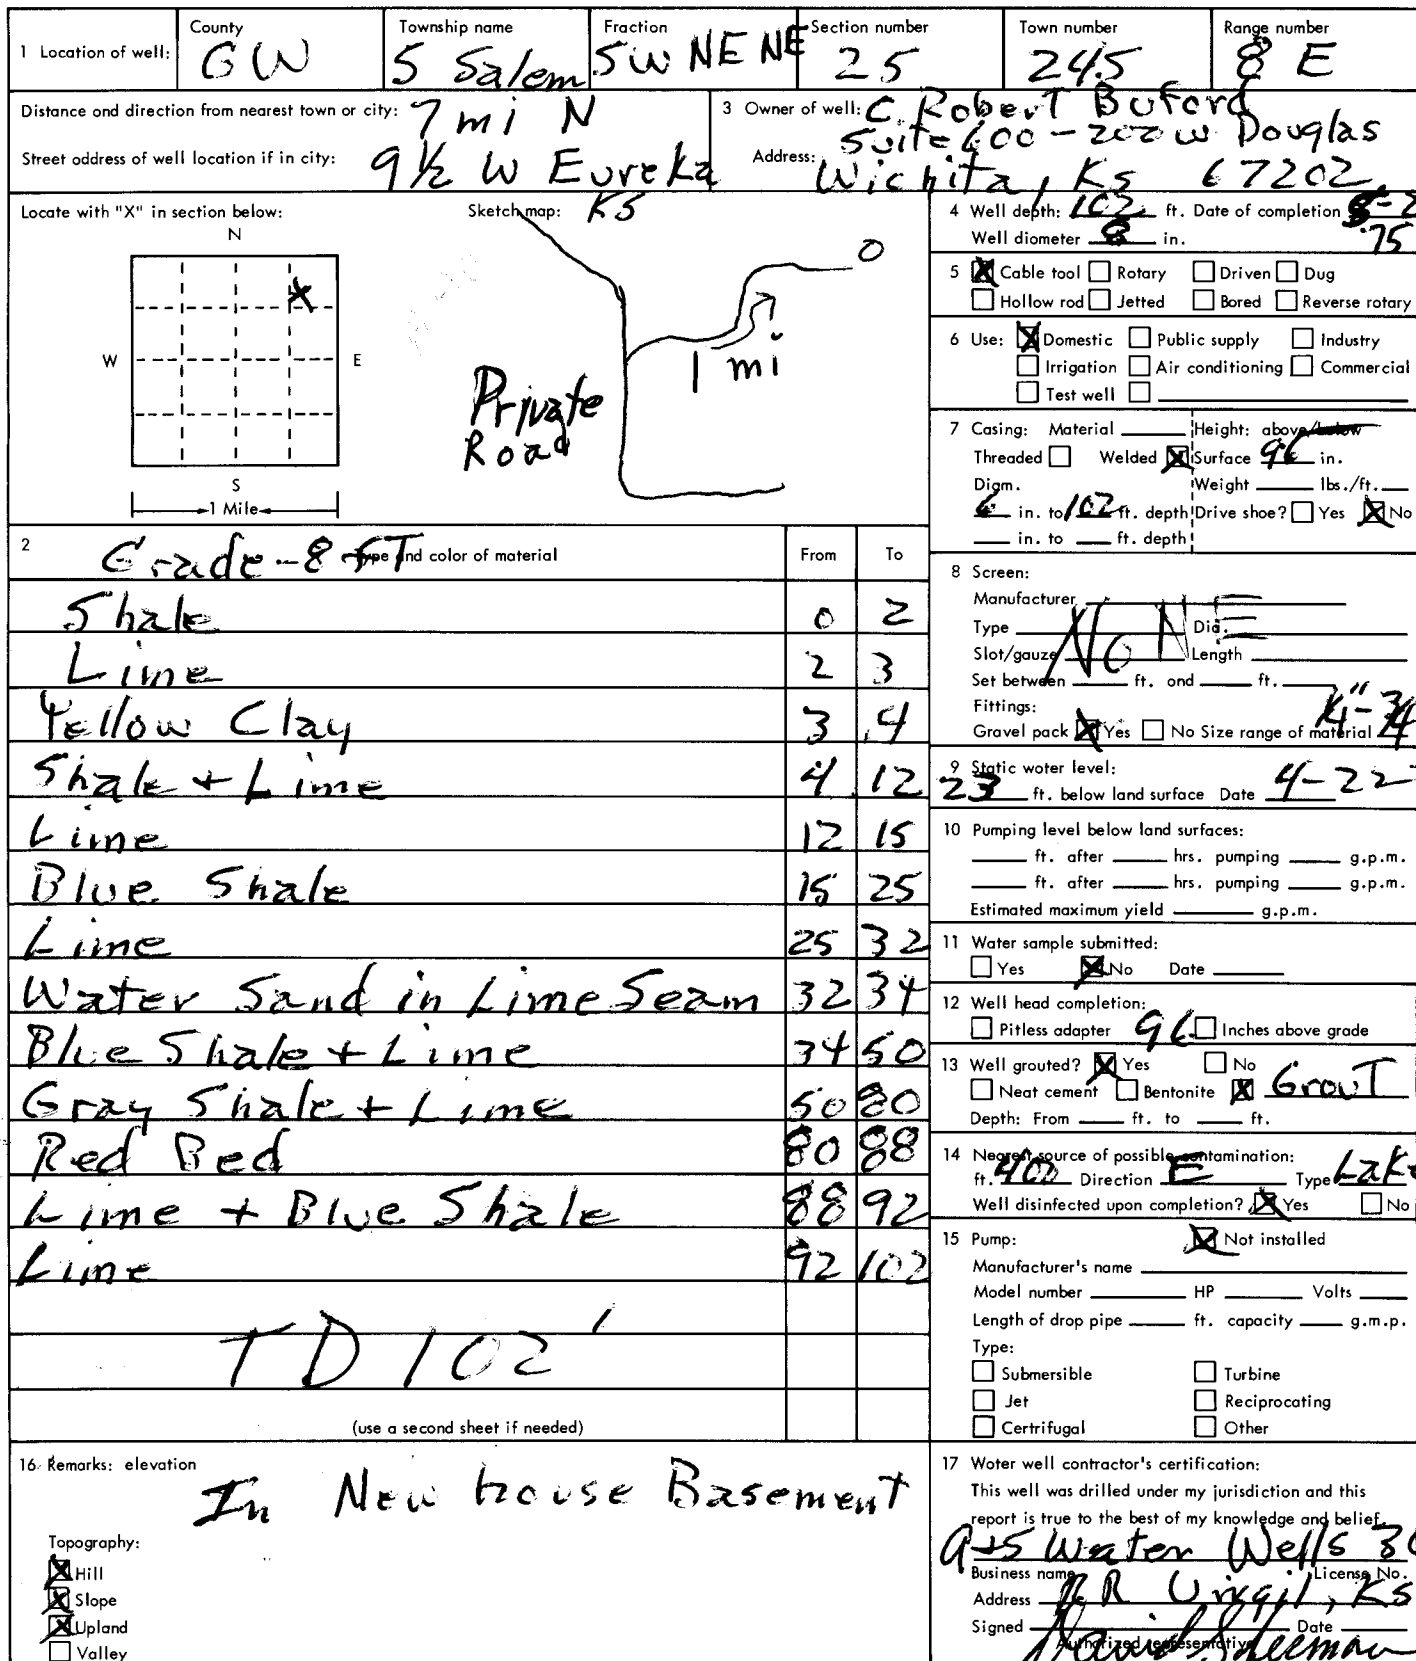 County Township name Fraction Section number Town number Range number
1 Location of well: GW 5 Salem SW NE NE 25 24S 8 E
Distance and direction from nearest town or city: 7 mi N
Street address of well location if in city: 9 1/2 W Eureka
KS
3 Owner of well: C. Robert Buford
Address: Suite 600 - 200 W Douglas
Wichita, Ks 67202
Locate with "X" in section below:
N
X
W E
S
1 Mile
Sketch map:
O
1 mi
Private
Road
2 Grade - 8 FT Type and color of material From To
Shale 0 2
Lime 2 3
Yellow Clay 3 4
Shale + Lime 4 12
Lime 12 15
Blue Shale 15 25
Lime 25 32
Water Sand in Lime Seam 32 34
Blue Shale + Lime 34 50
Gray Shale + Lime 50 80
Red Bed 80 88
Lime + Blue Shale 88 92
Lime 92 102
TD 102'
(use a second sheet if needed)
16 Remarks: elevation
In New house Basement
Topography:
X Hill
X Slope
X Upland
Valley
4 Well depth: 102 ft. Date of completion
Well diameter 8 in. 75
5 X Cable tool Rotary Driven Dug
Hollow rod Jetted Bored Reverse rotary
6 Use: X Domestic Public supply Industry
Irrigation Air conditioning Commercial
Test well
7 Casing: Material Height: above/below
Threaded Welded X Surface 96 in.
Diam. Weight lbs./ft.
6 in. to 102 ft. depth Drive shoe? Yes X No
in. to ft. depth
8 Screen:
Manufacturer
Type NONE Dia.
Slot/gauze Length
Set between ft. and ft.
Fittings:
Gravel pack X Yes No Size range of material 1/4"-3/4
9 Static water level:
23 ft. below land surface Date 4-22
10 Pumping level below land surfaces:
ft. after hrs. pumping g.p.m.
ft. after hrs. pumping g.p.m.
Estimated maximum yield g.p.m.
11 Water sample submitted:
Yes X No Date
12 Well head completion:
Pitless adapter 96 Inches above grade
13 Well grouted? X Yes No
Neat cement Bentonite X Grout
Depth: From ft. to ft.
14 Nearest source of possible contamination:
ft. 400 Direction E Type Lake
Well disinfected upon completion? X Yes No
15 Pump: X Not installed
Manufacturer's name
Model number HP Volts
Length of drop pipe ft. capacity g.m.p.
Type:
Submersible Turbine
Jet Reciprocating
Certrifugal Other
17 Water well contractor's certification:
This well was drilled under my jurisdiction and this
report is true to the best of my knowledge and belief.
A+S Water Wells
Business name License No.
Address RR Virgil, KS
Signed Date
Authorized representative